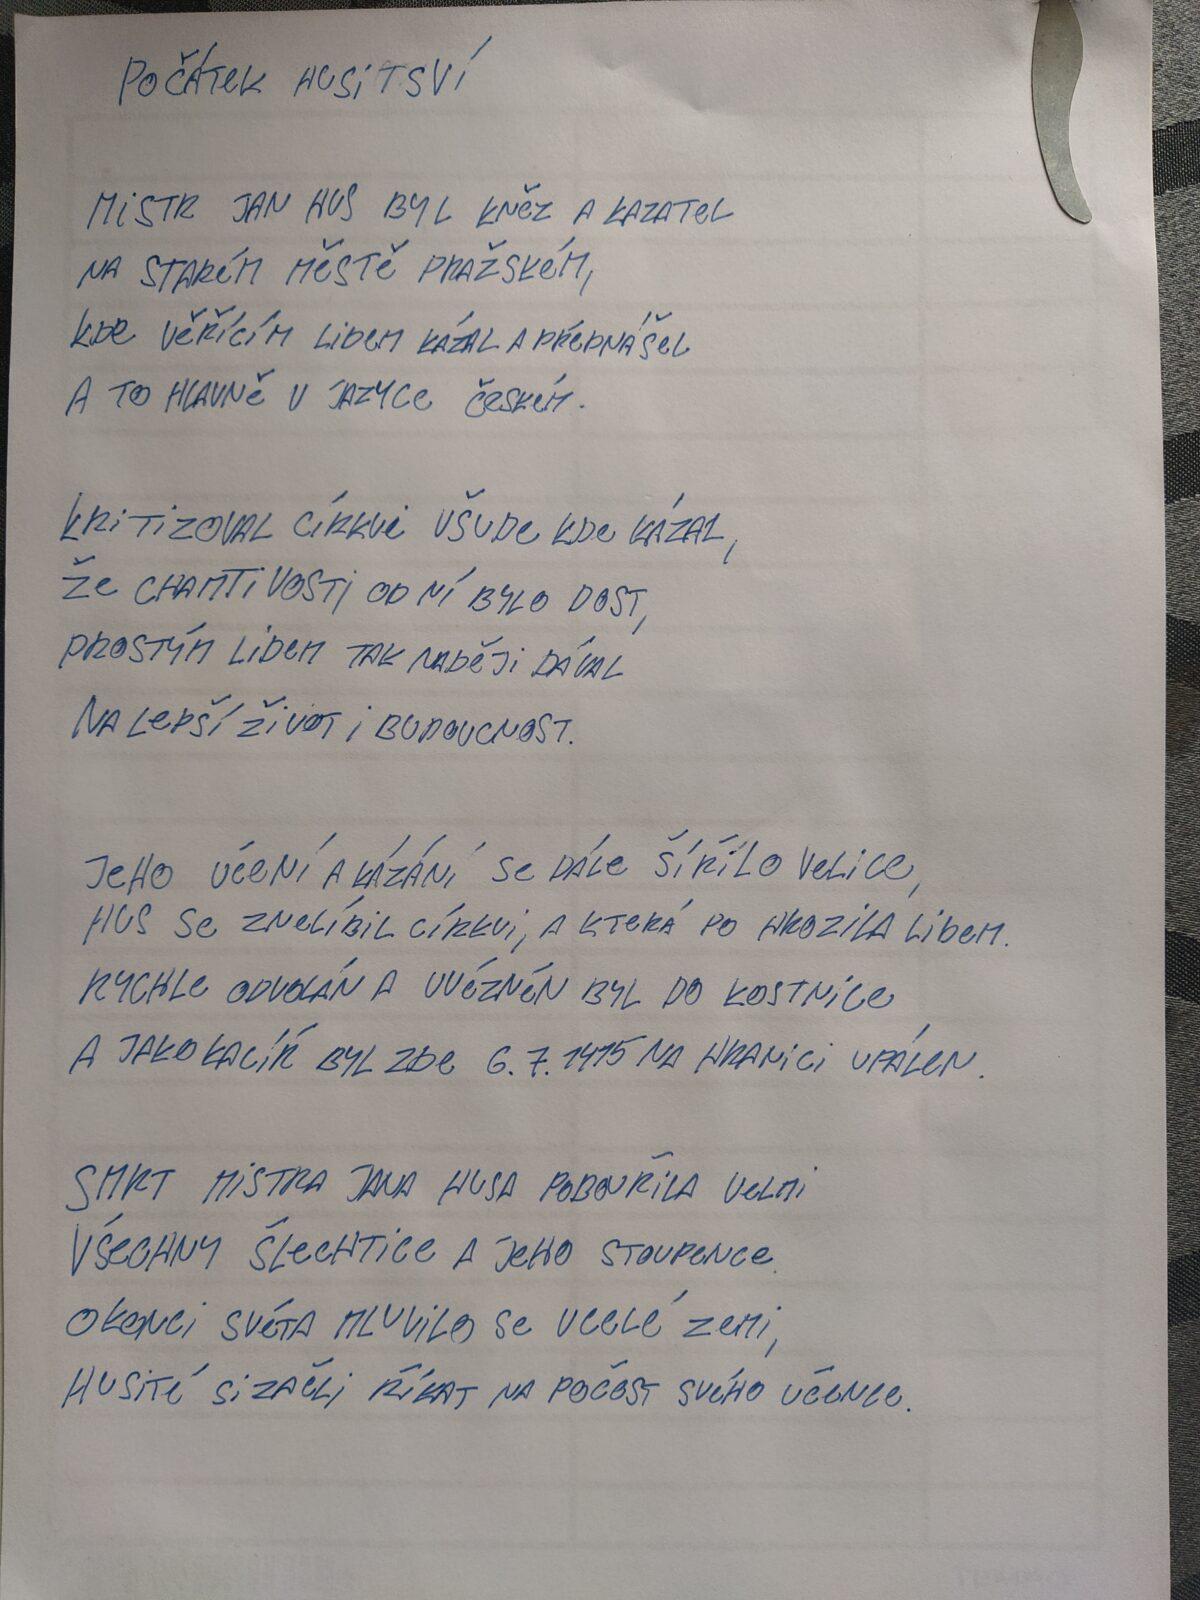 POČÁTEK HUSITSVÍ
MISTR JAN HUS BYL KNĚZ A KAZATEL
NA STARÉM MĚSTĚ PRAŽSKÉM,
KDE VĚŘÍCÍM LIDEM KÁZAL A PŘEDNÁŠEL
A TO HLAVNĚ V JAZYCE ČESKÉM.
KRITIZOVAL CÍRKVE VŠUDE KDE KÁZAL,
ŽE CHAMTIVOSTI OD NÍ BYLO DOST,
PROSTÝM LIDEM TAK NADĚJI DÁVAL
NA LEPŠÍ ŽIVOT I BUDOUCNOST.
JEHO UČENÍ A KÁZÁNÍ SE DÁLE ŠÍŘÍLO VELICE,
HUS SE ZNELÍBIL CÍRKVI, A KTERÁ PO HROZILA LIDEM.
RYCHLE ODVOLÁN A UVĚZNĚN BYL DO KOSTNICE
A JAKO KACÍŘ BYL ZDE 6.7.1415 NA HRANICI UPÁLEN.
SMRT MISTRA JANA HUSA POBOUŘILA VELMI
VŠECHNY ŠLECHTICE A JEHO STOUPENCE.
O KONCI SVĚTA MLUVILO SE V CELÉ ZEMI,
HUSITÉ SI ZAČLI ŘÍKAT NA POČEST SVÉHO UČENCE.